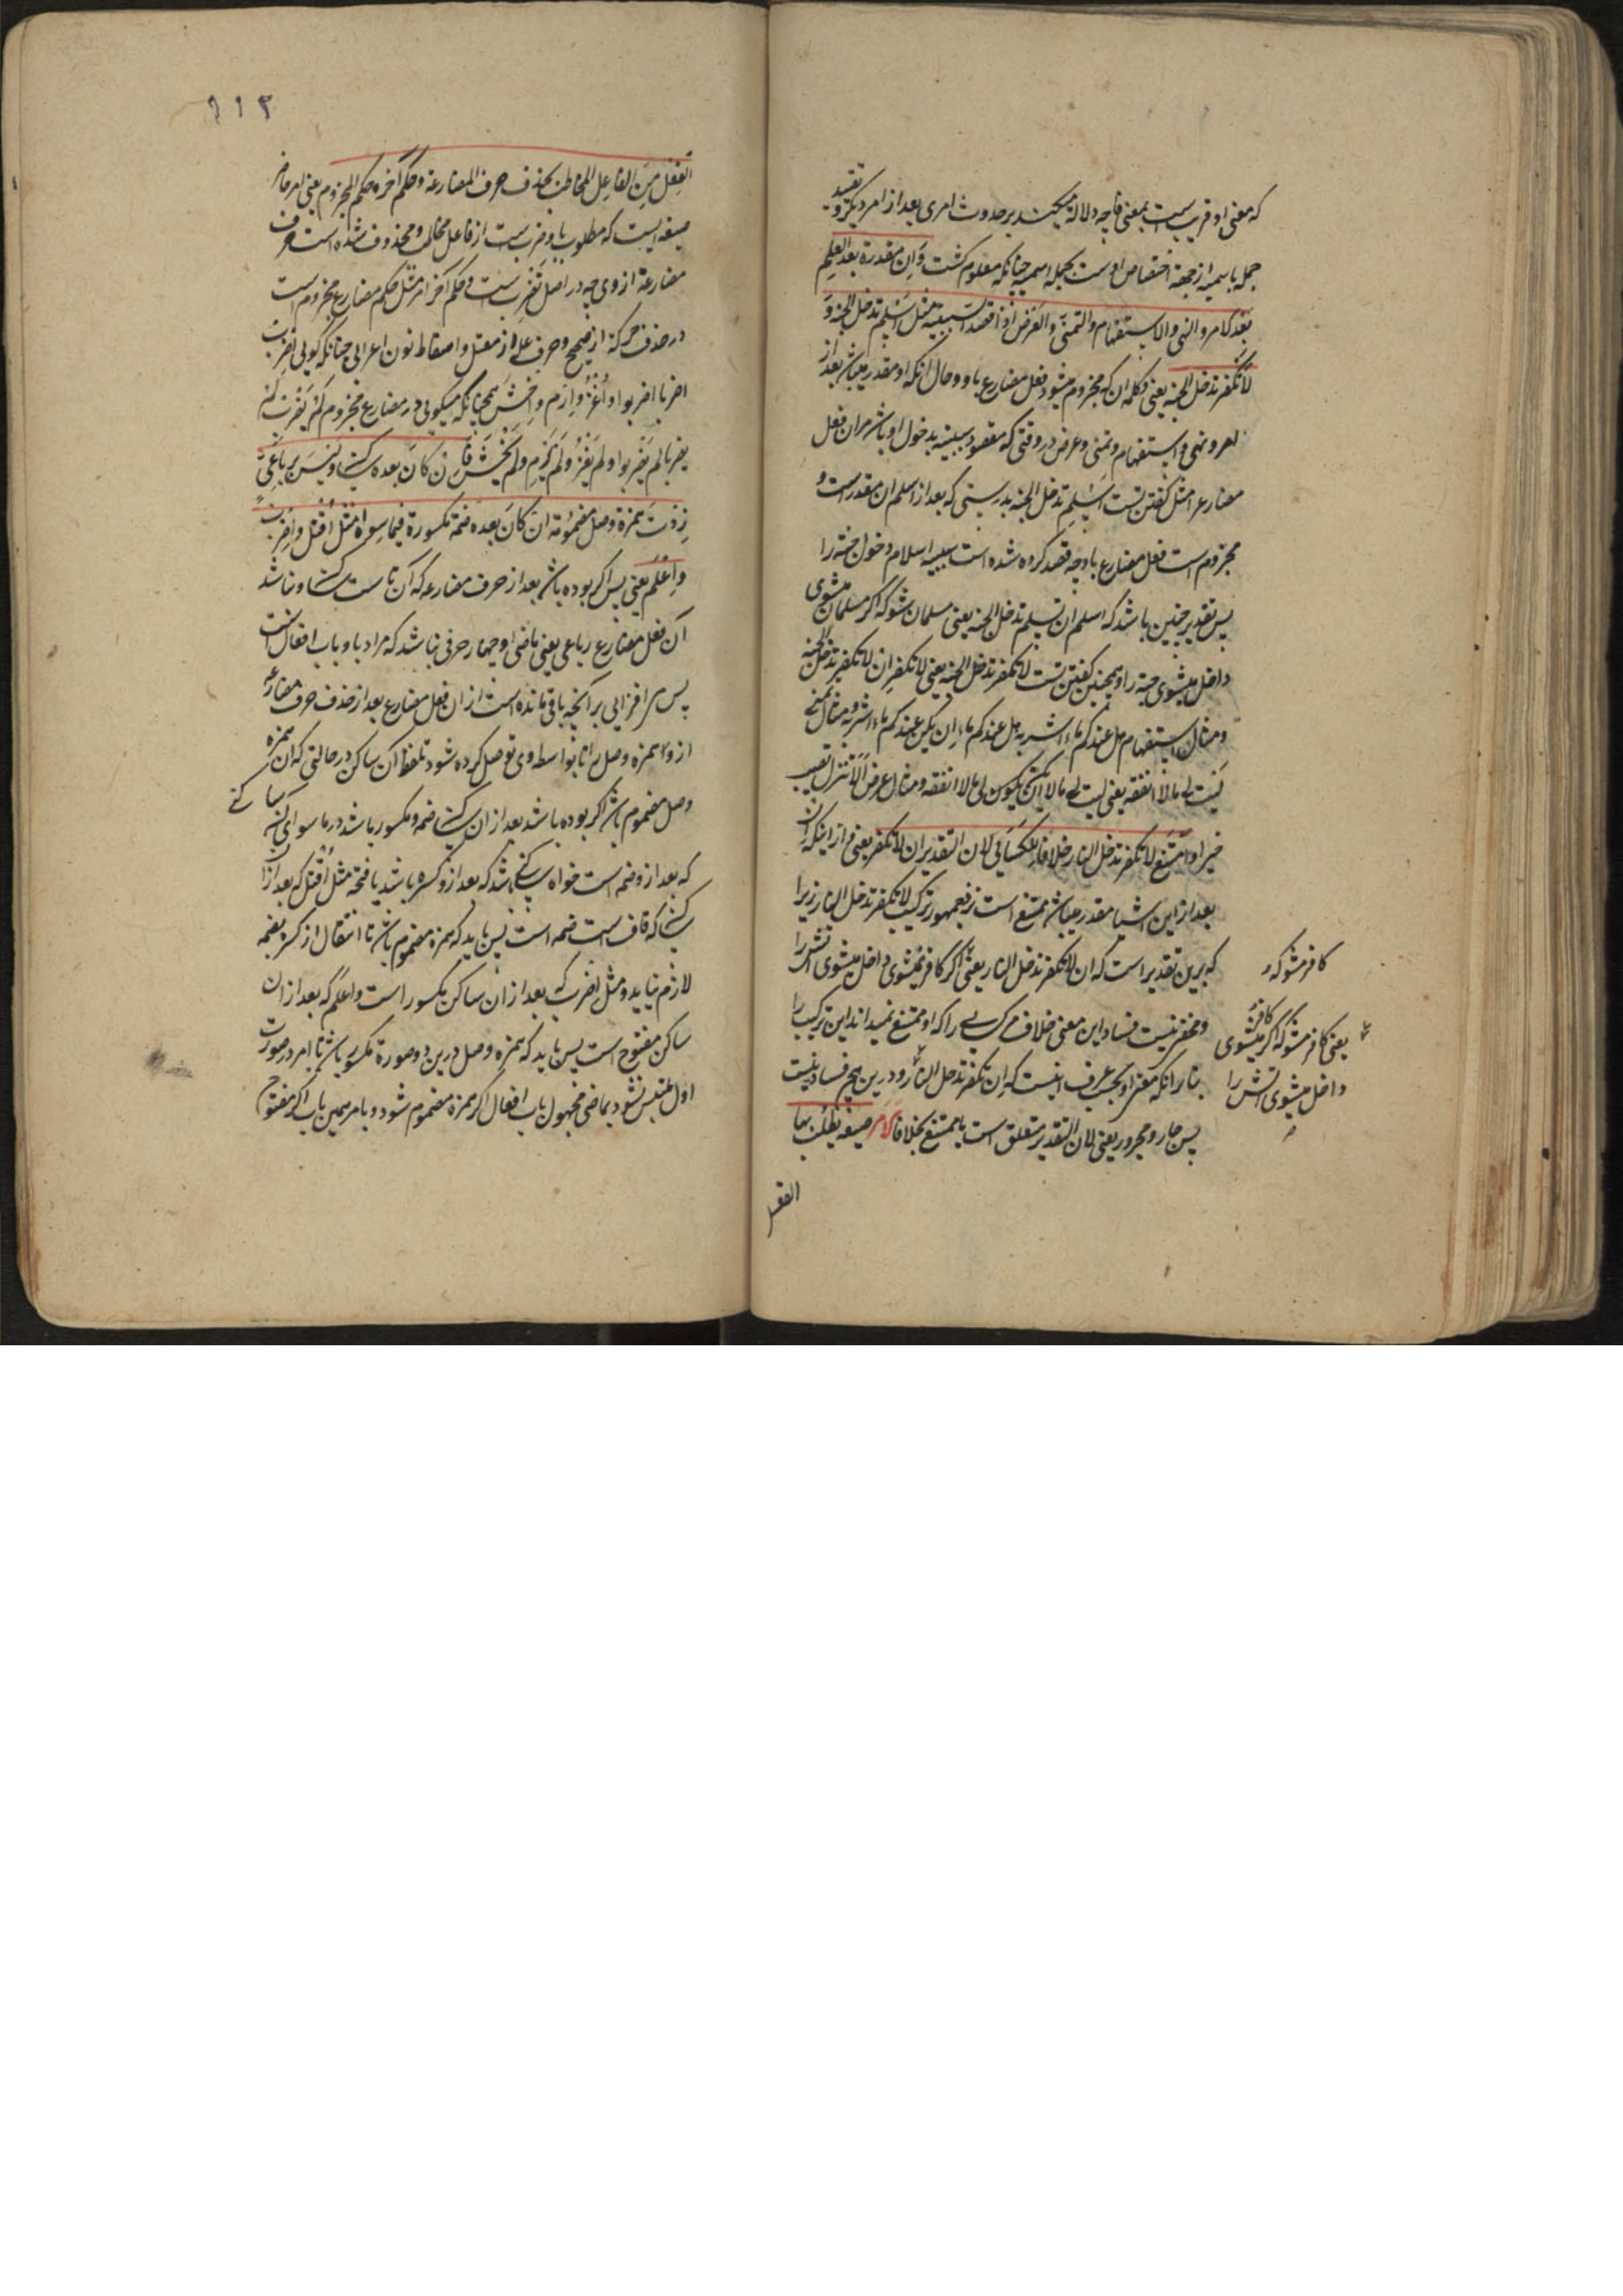 که معنی او قریب است بمعنی فا چه دلالة میکند بر حدوث امری بعد از امر دیگر و تقیید
جمله باسمیه از جهة اختصاص اوست بجمله اسمیه چنانکه معلوم گشت وَاِن مقدرة بعد العلم
بعد الامر والنهی والاستفهام والتمنی والعرض اذا قصد السببیة مثل اسلم تدخل الجنة وَ
لاتکفر تدخل الجنة یعنی و کلمه ان که مجزوم میشود فعل مضارع باو و حال آنکه او مقدر میباشد بعد از
امر و نهی و استفهام و تمنی و عرض در وقتی که مقصود سببیه بدخول او باشد مر آن فعل
مضارع را مثل گفتن تست اَسلِم تدخل الجنة بدرستی که بعد از اسلم ان مقدر است و
مجزوم است فعل مضارع باو چه قصد کرده شده است سببیه اسلام دخول جنة را
پس تقدیر چنین باشد که اسلم ان تسلم تدخل الجنة یعنی مسلمان شو که اگر مسلمان میشوی
داخل میشوی جنة را و همچنین گفتن تست لاتکفر تدخل الجنة یعنی لاتکفر ان لاتکفر تدخل الجنة
و مثال استفهام هل عندکم ماء اشربه هل عندکم ماء اِن یکن عندکم ماء اشربه و مثال تمنی
لیت لی مالا انفقه یعنی لیت لی مالا ان یکون لی مالا انفقه و مثال عرض اَلَا تنزل تصب
خیرا وامتنع لاتکفر تدخل النار خلافا للکسائی لان التقدیر ان لاتکفر یعنی و از اینکه ان
بعد از این اشیا مقدر میباشد ممتنع است نزد جمهور ترکیب لاتکفر تدخل النار زیرا
که برین تقدیر است که ان لاتکفر تدخل النار یعنی اگر کافر نمیشوی داخل میشوی آتش را
و مخفی نیست فساد این معنی خلاف مر کسایی را که او ممتنع نمیداند این ترکیب را
بنا بر آنکه معنی او بحسب عرف اینست که اِن تکفر تدخل النار و درین هیچ فساد نیست
پس جار و مجرور یعنی لان التقدیر متعلق است بامتنع بخلافا الامر صیغة یطلب بها
الفعل
کافر مشو که
یعنی کافر مشو که اگر کافر میشوی
داخل میشوی آتش را
۱۱۲
الفِعل مِنَ الفاعِل المخاطب بحذف حرف المضارعة وحکم اخره حکم المجزوم یعنی امر حاضر
صیغه ایست که مطلوب باو ضرب است از فاعل مخاطب و محذوف شده است حرف
مضارعة از وی چه در اصل تضرب است و حکم آخر امر مثل حکم مضارع مجزوم است
در حذف حرکة از صحیح و حرف علة از معتل و اسقاط نون اعرابی چنانکه گویی اضرب
اضربا اضربوا و اُغزُ و اِرم و اخش همچنانکه میگویی در مضارع مجزوم لم یضرب لم
یضربا لم یضربوا و لم یغز ولم یرم ولم یخش فاِن کانَ بعده ساکن ولیس برباعیّ
زدت همزة وصل مضمومة ان کانَ بعده ضمة مکسورة فیما سواه مثل اُقتل و اِضرب
واِعلَم یعنی پس اگر بوده باشد بعد از حرف مضارعه که آن تاست ساکن و نباشد
آن فعل مضارع رباعی یعنی ماضی او چهار حرفی نباشد که مراد باو باب افعال است
پس می افزایی بر آنچه باقی مانده است از ان فعل مضارع بعد از حذف حرف مضارعه
ازو همزه وصل را تا بواسطه وی توصل کرده شود بتلفظ آن ساکن در حالتی که آن همزه
وصل مضموم باشد اگر بوده باشد بعد از ان ساکن ضمه و مکسور باشد در ما سوای آن ساکنی
که بعد ازو ضمه است خواه ساکنی باشد که بعد ازو کسره باشد یا فتحه مثل اُقتل که بعد از
ساکن که قاف است ضمه است پس باید که همزه مضموم باشد تا انتقال از کسره بضمه
لازم نیاید و مثل اضرب که بعد از ان ساکن مکسور است و اعلم که بعد از ان
ساکن مفتوح است پس باید که همزه وصل درین دو صورة مکسور باشد تا امر در صورت
اول ملتبس نشود بماضی مجهول باب افعال اگر همزه مضموم شود و بامر همین باب اگر مفتوح